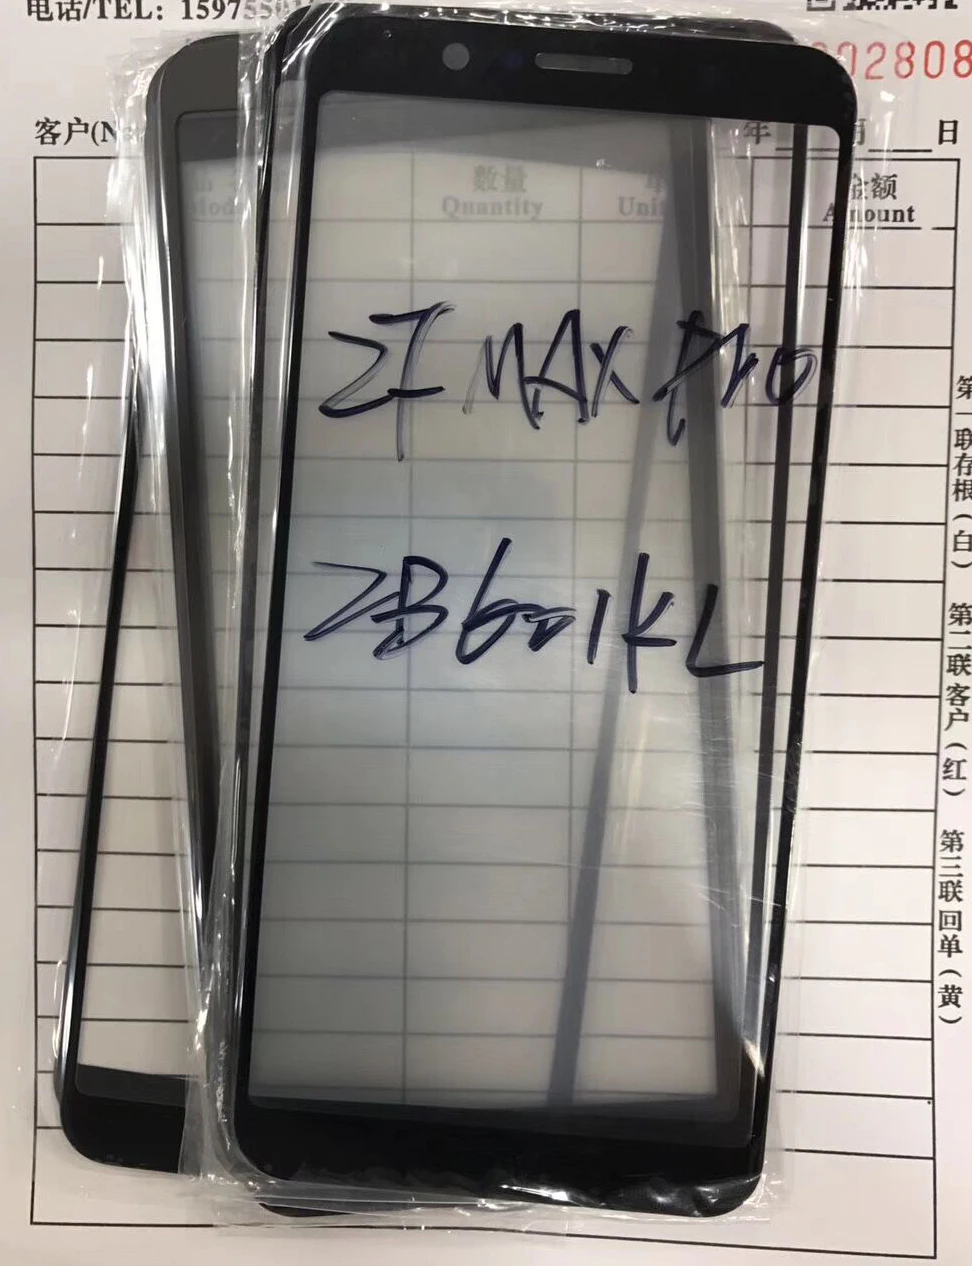 电话/TEL: 15975501
02808
客户(N
年 月 日
数量
Quantity
Unit
金额
Amount
ZF MAX Pro
ZB601KL
第一联存根(白) 第二联客户(红) 第三联回单(黄)